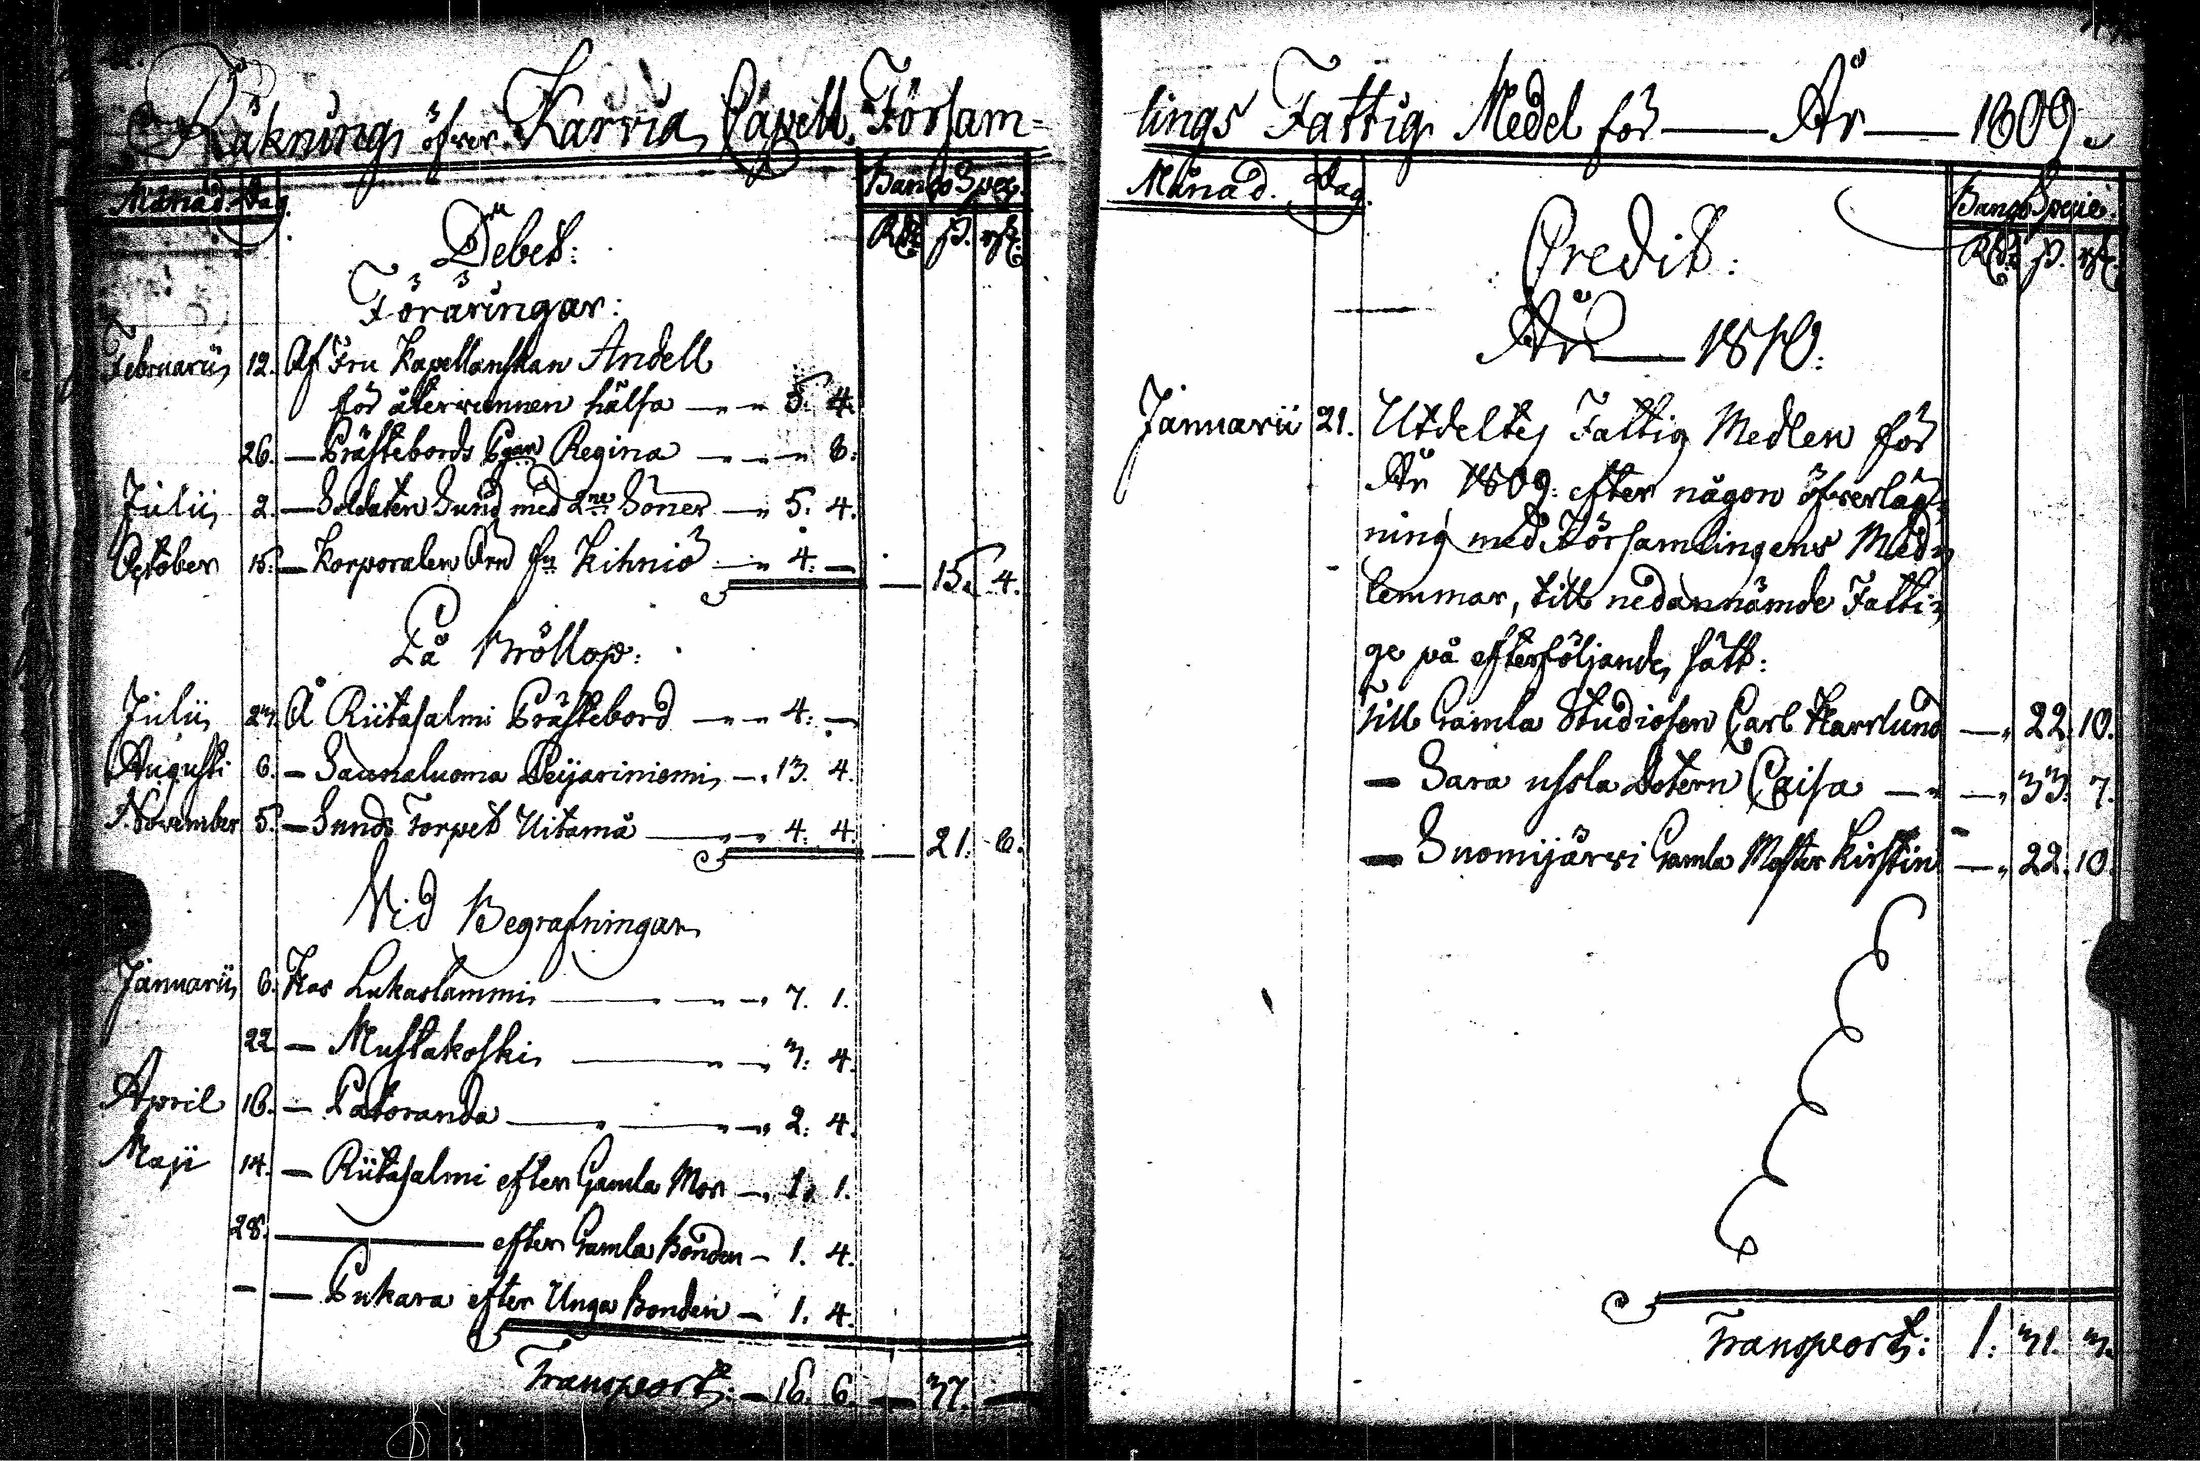 Räkning öfver Karvia Capell Försam=
Månad. Dag. Banco Spec.
Rdr ß. rst.
Debet:
Föräringar:
Februarii 12. Af Fru Kapellanskan Andell
för återvunnen hälsa — „ — 5. 4.
26. — Prästebords Pgan Regina — „ — „ 6.
Julii 2. — Soldaten Sund med 2ne Söner — „ 5. 4.
October 15. — Korporalen Örn fr Kihniö — „ 4. — — 15. 4.
På Bröllop:
Julii 23. Å Riitasalmi Prästebord — „ — 4. —
Augusti 6. — Saunaluoma Peijariniemi — „ 13. 4.
November 5. — Sunds Torpet Uitamå — „ 4. 4. — 21. 6.
Vid Begrafningar
Januarii 6. Hos Lukaslammi — „ — „ 7. 1.
22 — Mustakoski — „ — „ 3. 4.
April 16. — Patoranda — „ — „ 2. 4.
Maji 14. — Riitasalmi efter Gamla Mor — „ 1. 1.
28. — efter Gamla Bonden — 1. 4.
— — Pukara efter Unga Bonden — 1. 4.
Transport: — 16. 6. — 37. —
lings Fattig Medel för — År — 1809.
Månad. Dag. Banco Specie.
Rdr ß. rst.
Credit:
År — 1810:
Januarii 21. Utdeltes Fattig Medlen för
År 1809. efter någon öfverlägg-
ning med Församlingens Med-
lemmar, till nedannämde Fatti-
ge på efterföljande sätt:
Till Gamla Studiosen Carl Harrlund — „ 22. 10.
— Sara ussla dotern Caisa — „ — „ 33. 7.
— Suomijärvi Gamla Moster Kirstin — „ 22. 10.
Transport: 1. 31. 3.